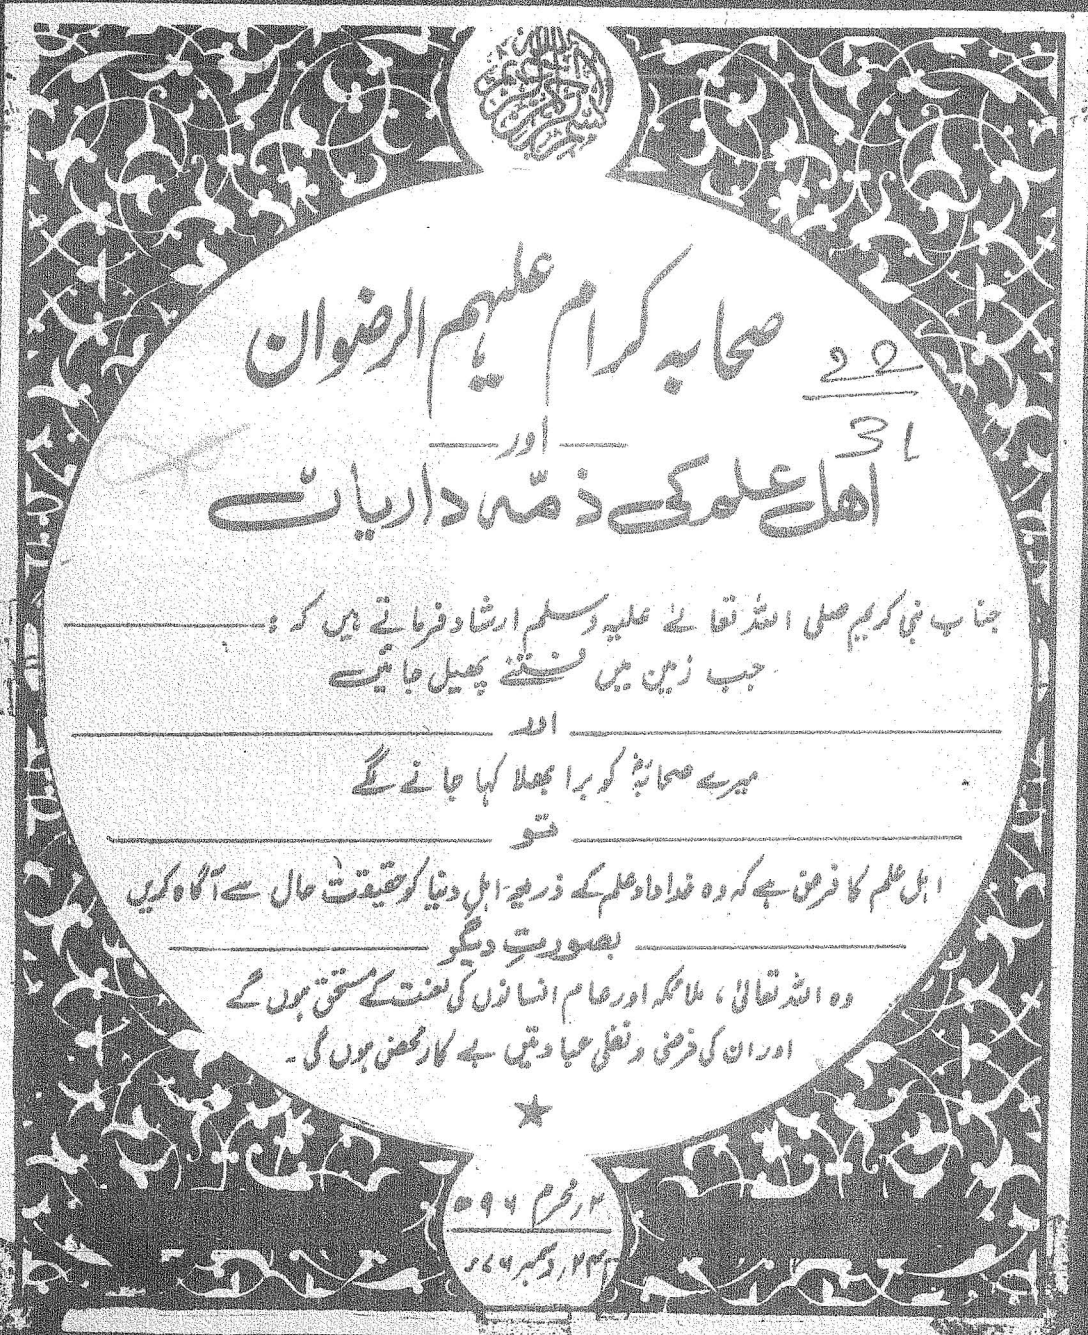 بسم اللہ الرحمن الرحیم
صحابہ کرام علیہم الرضوان
22
31
اور
اھل علم کی ذمّہ داریاں
جناب نبی کریم صلی اللہ تعالےٰ علیہ وسلم ارشاد فرماتے ہیں کہ :
جب زمین میں فتنے پھیل جائیں
اور
میرے صحابہؓ کو برا بھلا کہا جانے لگے
تو
اہل علم کا فرض ہے کہ وہ خداداد علم کے ذریعہ اہلِ دنیا کو حقیقت حال سے آگاہ کریں
بصورتِ دیگر
وہ اللہ تعالیٰ ، ملائکہ اور عام انسانوں کی لعنت کے مستحق ہوں گے
اور ان کی فرضی و نفلی عبادتیں بے کار محض ہوں گی ۔
۲ر محرم ۹۶ھ
دسمبر ۷۶ء